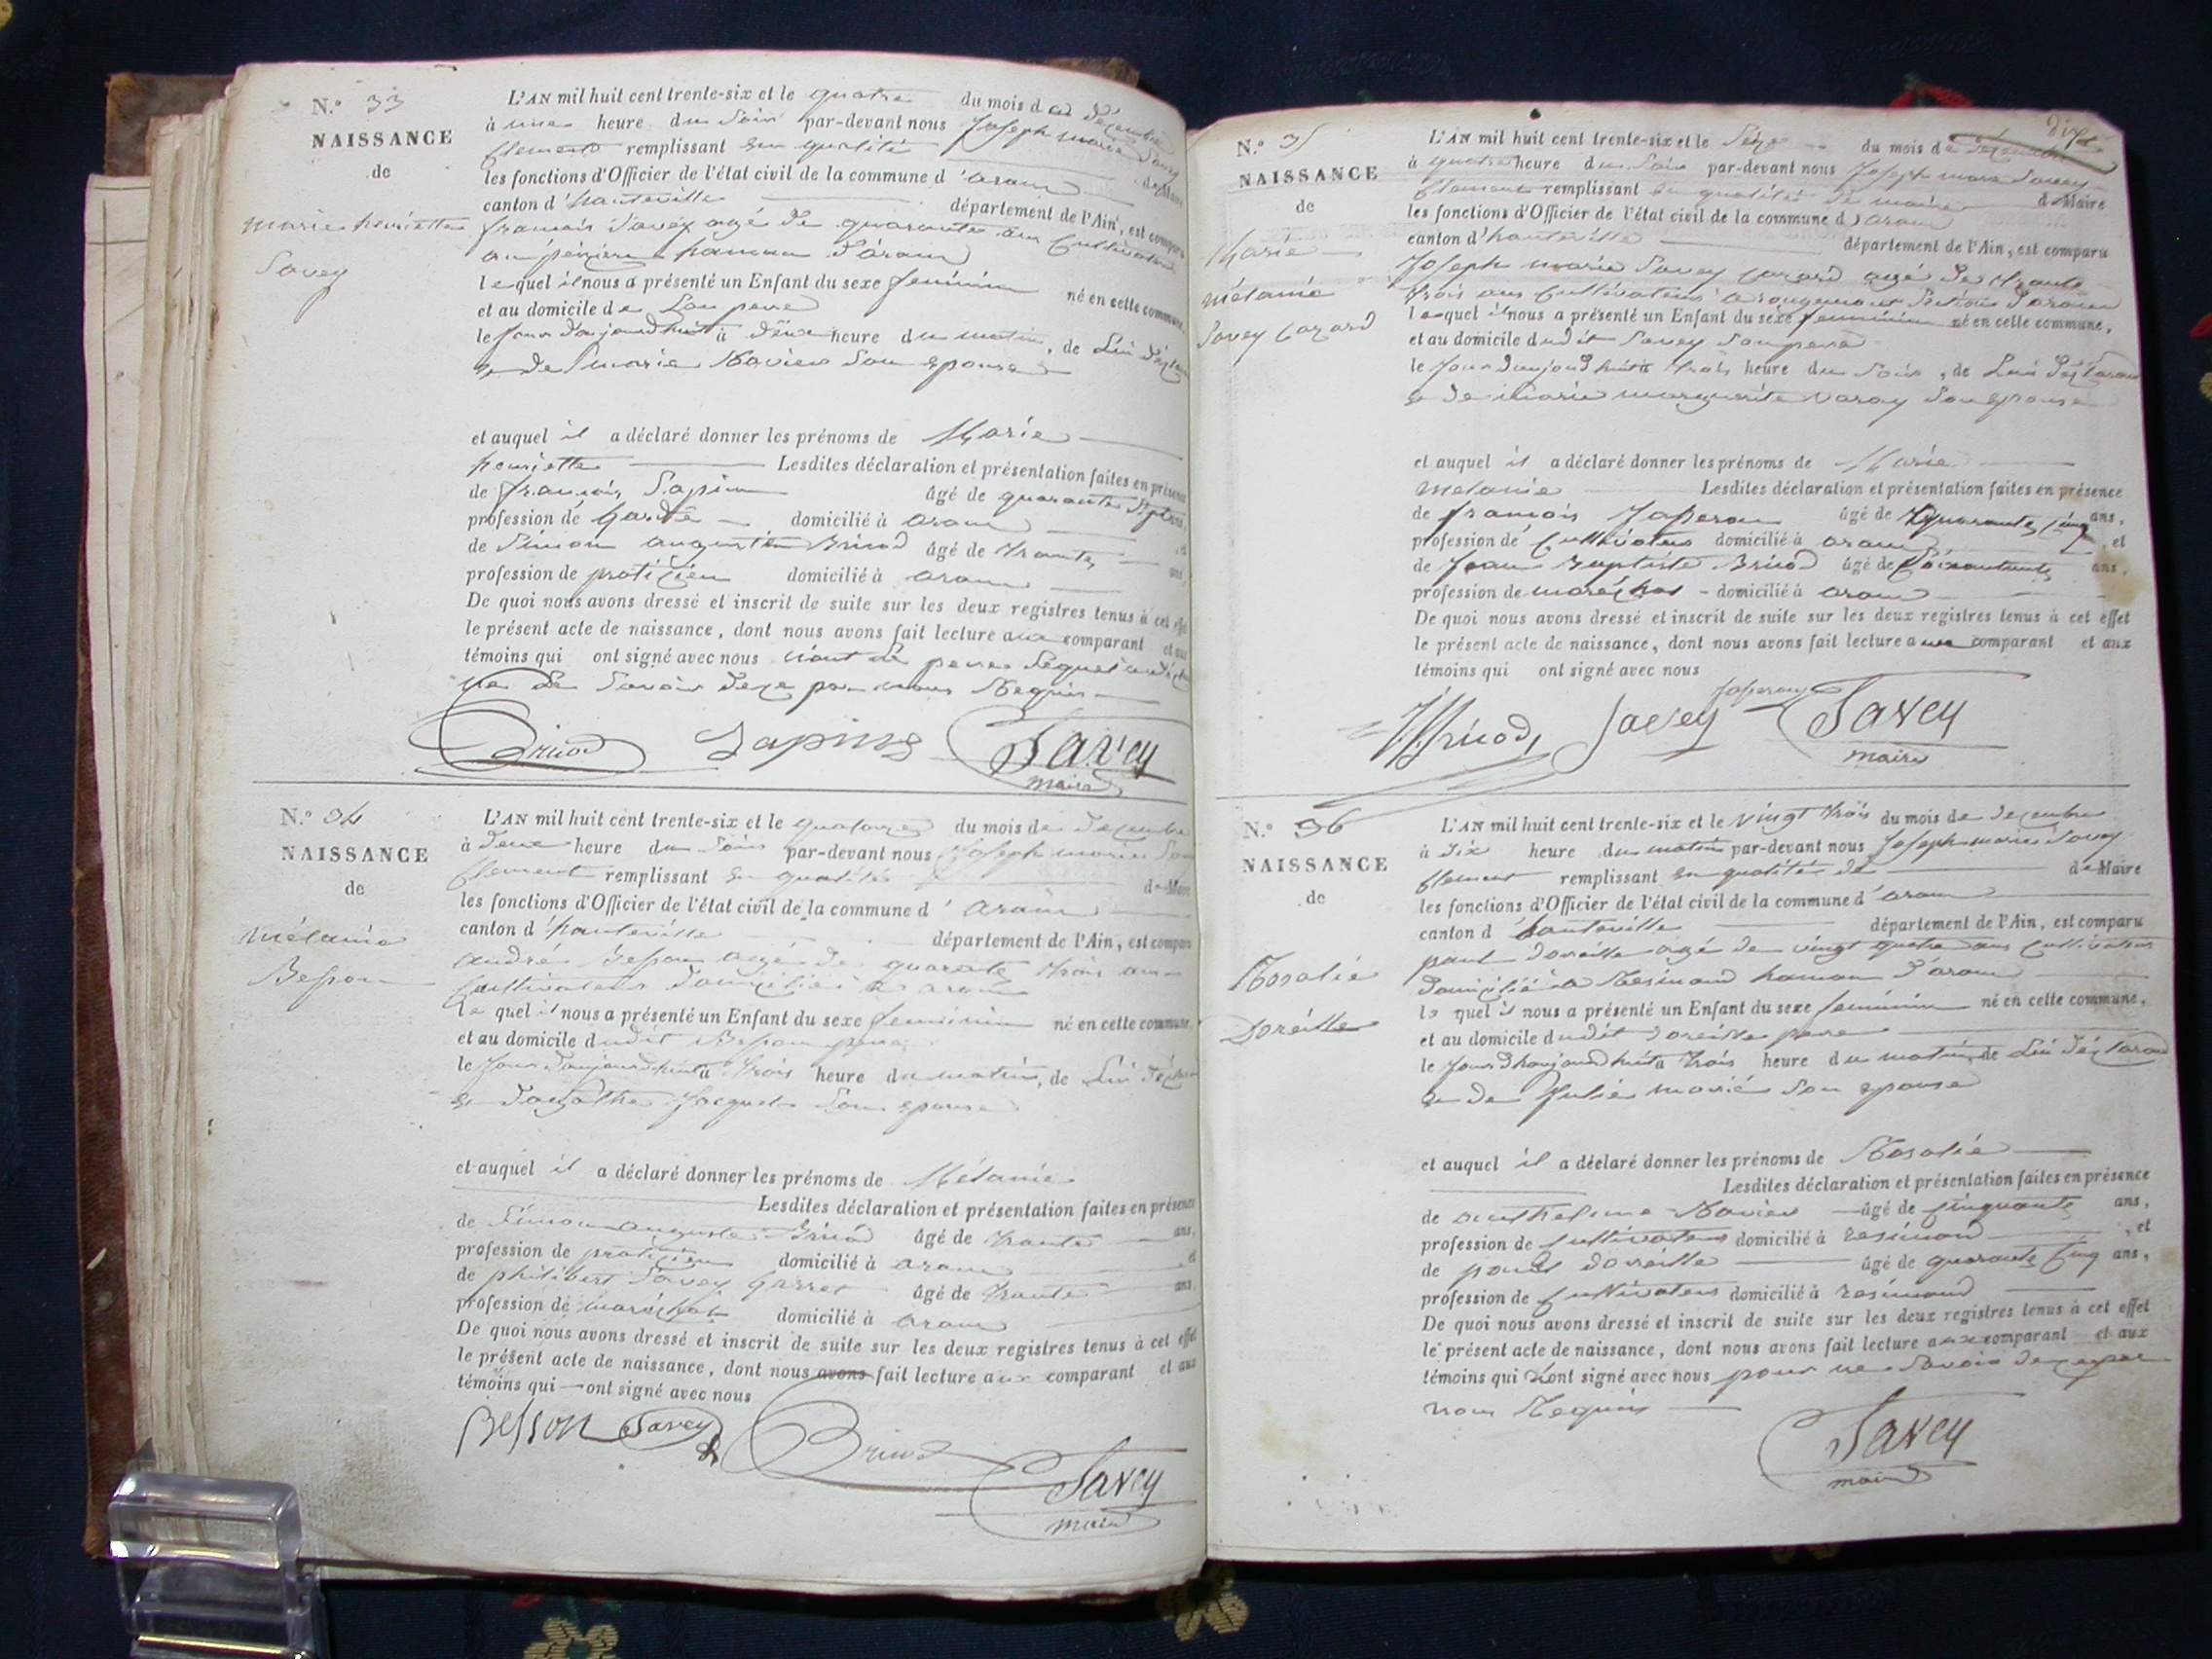 N.° 33
NAISSANCE
de
marie henriette
Savey
L'AN mil huit cent trente-six et le quatre du mois de décembre
à une heure du soir par-devant nous Joseph marie Savey
Clement remplissant en qualité de Maire
les fonctions d'Officier de l'état civil de la commune d'aranc
canton d'hauteville département de l'Ain, est comparu
francois Savey agé de quarante ans Cultivateur
hameau d'aranc
lequel il nous a présenté un Enfant du sexe feminin né en cette commune,
et au domicile de Son pere
le Jour d'aujourd'huit à deux heure du matin, de Lui déclarant
et de marie Navier Son epouse
et auquel il a déclaré donner les prénoms de Marie
henriette Lesdites déclaration et présentation faites en présence
de francois Sapin âgé de quarante Sept ans,
profession de garde domicilié à aranc, et
de Simon augustin Brucod âgé de trante ans,
profession de praticien domicilié à aranc
De quoi nous avons dressé et inscrit de suite sur les deux registres tenus à cet effet
le présent acte de naissance, dont nous avons fait lecture aux comparant et aux
témoins qui ont signé avec nous non le pere Lequel a dit
ne Savoir de ce par nous Requis
Sapins Savey
maire
N.° 34
NAISSANCE
de
mélanie
Besson
L'AN mil huit cent trente-six et le quatorze du mois de decembre
à deux heure du Soir par-devant nous Joseph marie Savey
Clement remplissant en qualité de Maire
les fonctions d'Officier de l'état civil de la commune d'aranc
canton d'hauteville département de l'Ain, est comparu
andré Besson agé de quarante trois ans
Cultivateur domicilié à aranc
le quel il nous a présenté un Enfant du sexe feminin né en cette commune,
et au domicile dudit Besson pere
le Jour d'aujourd'huit à trois heure du matin, de Lui déclarant
et d'agathe Jacquet Son epouse
et auquel il a déclaré donner les prénoms de Mélanie
Lesdites déclaration et présentation faites en présence
de Simon auguste âgé de trante ans,
profession de praticien domicilié à aranc et
de philibert Savey âgé de trante ans,
profession de maréchal domicilié à aranc
De quoi nous avons dressé et inscrit de suite sur les deux registres tenus à cet effet
le présent acte de naissance, dont nous avons fait lecture aux comparant et aux
témoins qui ont signé avec nous
Besson Savey
Savey
maire
N.° 35
NAISSANCE
de
Marie
mélanie
Savey Cozard
L'AN mil huit cent trente-six et le Seize du mois de decembre
à quatre heure du Soir par-devant nous Joseph marie Savey
Clement remplissant en qualité de maire de Maire
les fonctions d'Officier de l'état civil de la commune d'aranc
canton d'hauteville département de l'Ain, est comparu
Joseph marie Savey agé de trante
trois ans Cultivateur à rougemont Section d'aranc
lequel il nous a présenté un Enfant du sexe feminin né en cette commune,
et au domicile dudit Savey Son pere
le Jour d'aujourd'huit à trois heure du Soir, de Lui déclarant
et de marie marguerite Varay Son epouse
et auquel il a déclaré donner les prénoms de Marie
melanie Lesdites déclaration et présentation faites en présence
de francois Josserou âgé de quarante Cinq ans,
profession de Cultivateur domicilié à aranc, et
de Jean Baptiste âgé de Soixante ans,
profession de maréchal domicilié à aranc
De quoi nous avons dressé et inscrit de suite sur les deux registres tenus à cet effet
le présent acte de naissance, dont nous avons fait lecture aux comparant et aux
témoins qui ont signé avec nous
Savey Savey
maire
N.° 36
NAISSANCE
de
Rosalie
Doreille
L'AN mil huit cent trente-six et le vingt trois du mois de decembre
à dix heure du matin par-devant nous Joseph marie Savey
Clement remplissant en qualité de de Maire
les fonctions d'Officier de l'état civil de la commune d'aranc
canton d'hauteville département de l'Ain, est comparu
paul Doreille agé de vingt quatre ans Cultivateur
domicilié à Resinand hameau d'aranc
le quel il nous a présenté un Enfant du sexe feminin né en cette commune,
et au domicile dudit Doreille pere
le Jour d'haujourd'huit à trois heure du matin, de Lui déclarant
et de Julie marié Son epouse
et auquel il a déclaré donner les prénoms de Rosalie
Lesdites déclaration et présentation faites en présence
de anthelme Navier âgé de Cinquante ans,
profession de Cultivateur domicilié à resinand, et
de paul Doreille âgé de quarante Cinq ans,
profession de Cultivateur domicilié à resinand
De quoi nous avons dressé et inscrit de suite sur les deux registres tenus à cet effet
le présent acte de naissance, dont nous avons fait lecture aux comparant et aux
témoins qui n'ont signé avec nous pour ne Savoir de ce par
nous Requis
Savey
maire